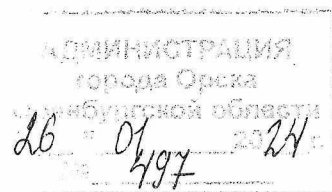 АДМИНИСТРАЦИЯ
города Орска
Оренбургской области
26 " 01 2024 г.
497